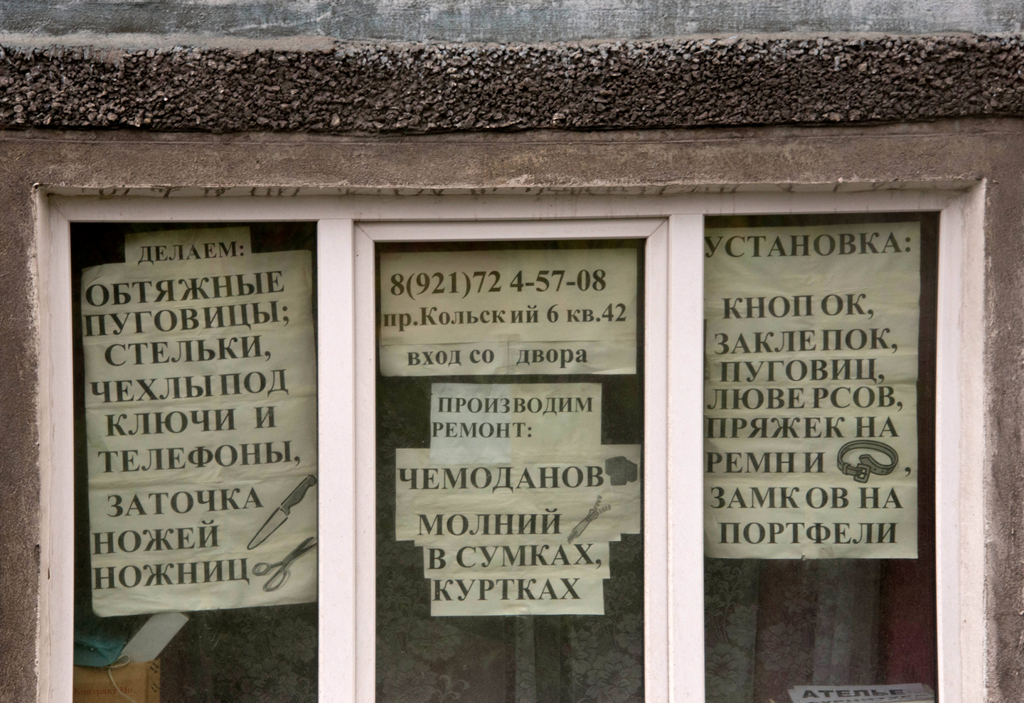 ДЕЛАЕМ:
ОБТЯЖНЫЕ
ПУГОВИЦЫ;
СТЕЛЬКИ,
ЧЕХЛЫ ПОД
КЛЮЧИ И
ТЕЛЕФОНЫ,
ЗАТОЧКА
НОЖЕЙ
НОЖНИЦ
8(921)72 4-57-08
пр.Кольский 6 кв.42
вход со двора
ПРОИЗВОДИМ
РЕМОНТ:
ЧЕМОДАНОВ
МОЛНИЙ
В СУМКАХ,
КУРТКАХ
УСТАНОВКА:
КНОПОК,
ЗАКЛЕПОК,
ПУГОВИЦ,
ЛЮВЕРСОВ,
ПРЯЖЕК НА
РЕМНИ ,
ЗАМКОВ НА
ПОРТФЕЛИ
АТЕЛЬЕ